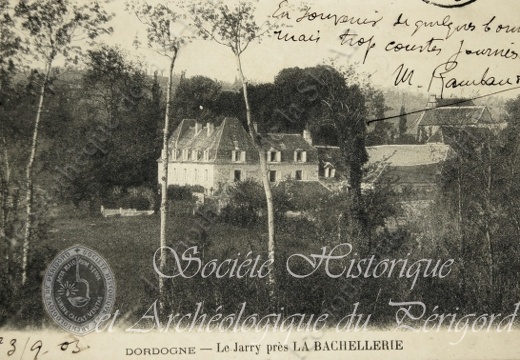 En souvenir de quelques bonnes
mais trop courtes journées
M. Rambaud
Société Historique
et Archéologique du Périgord
23/9.03
DORDOGNE — Le Jarry près LA BACHELLERIE